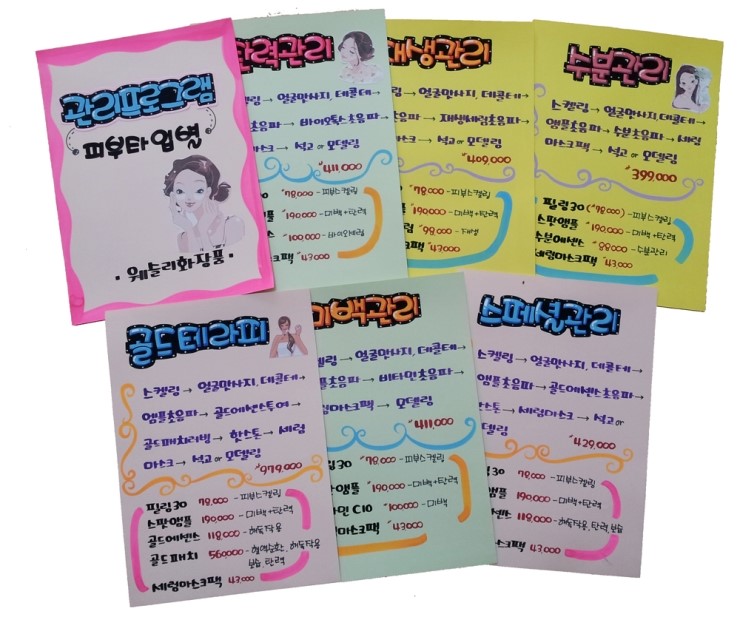 관리프로그램
피부타입별
·웨늘리화장품·
탄력관리
링→ 얼굴마사지, 데콜테→
초음파→ 바이오톡스초음파→
마스크→ 석고 or 모델링
₩411,000
₩78,000 - 피부스켈링
앰플 190,000 - 미백+탄력
100,000 - 바이오세럼
마스크팩 ₩43,000
재생관리
링→ 얼굴마사지, 데콜테→
초음파→ 재생세럼초음파→
마스크→ 석고 or 모델링
₩409,000
₩78,000 - 피부스켈링
앰플 ₩190,000 - 미백+탄력
세럼 ₩98,000 - 재생
마스크팩 ₩43,000
수분관리
스켈링→ 얼굴마사지, 데콜테→
앰플초음파→ 수분초음파→ 세럼
마스크팩→ 석고 or 모델링
₩399,000
필링30 (₩78,000) - 피부스켈링
스팟앰플 ₩190,000 - 미백+탄력
수분에센스 ₩88,000 - 수분관리
세럼마스크팩 ₩43,000
골드테라피
스켈링→ 얼굴마사지, 데콜테→
앰플초음파→ 골드에센스투여→
골드패치리빙→ 핫스톤→ 세럼
마스크→ 석고 or 모델링
₩979,000
필링30 78,000 - 피부스켈링
스팟앰플 190,000 - 미백+탄력
골드에센스 118,000 - 해독작용
골드패치 560,000 - 혈액순환, 해독작용
보습, 탄력
세럼마스크팩 43,000
미백관리
켈링→ 얼굴마사지, 데콜테→
플초음파→ 비타민초음파→
럼마스크팩→ 모델링
₩411,000
링30 ₩78,000 - 피부스켈링
팟앰플 ₩190,000 - 미백+탄력
민C10 ₩100,000 - 미백
마스크팩 ₩43,000
스페셜관리
스켈링→ 얼굴마사지, 데콜테→
앰플초음파→ 골드에센스초음파→
핫스톤→ 세럼마스크→ 석고 or
델링
₩429,000
30 ₩78,000 - 피부스켈링
앰플 ₩190,000 - 미백+탄력
에센스 118,000 - 해독작용, 탄력, 보습
스크팩 43,000